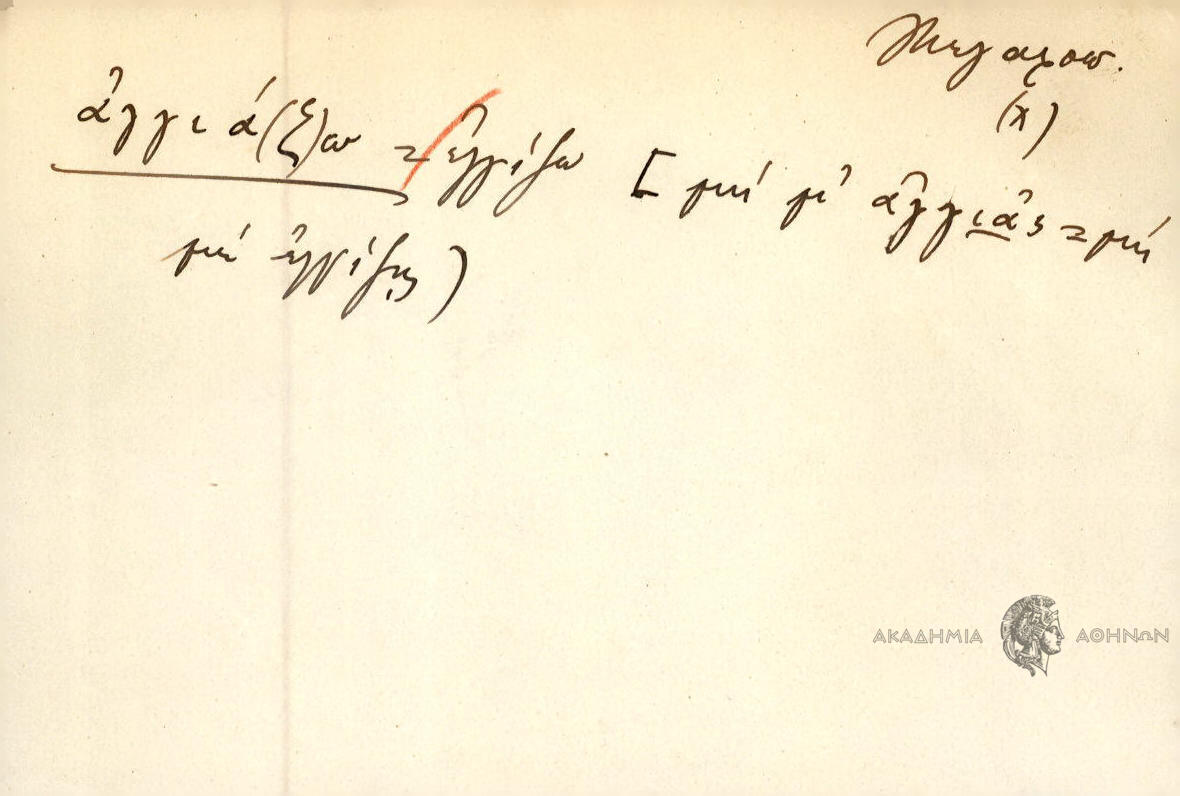 Μεγαροπ.
(χ)
ἀγγιά(ζ)ω = ἐγγίζω [μή μ' ἀγγιᾶς = μή
μέ ἐγγίζῃς)
ΑΚΑΔΗΜΙΑ ΑΘΗΝΩΝ